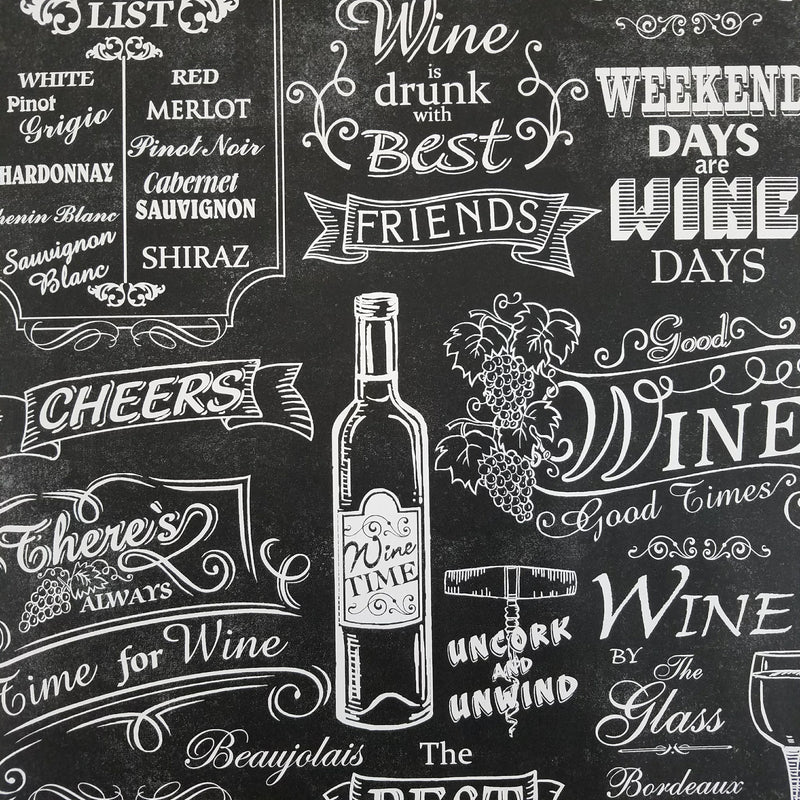 LIST
WHITE
Pinot
Grigio
HARDONNAY
henin Blanc
Sauvignon
Blanc
RED
MERLOT
Pinot Noir
Cabernet
SAUVIGNON
SHIRAZ
Wine
is
drunk
with
Best
FRIENDS
WEEKEND
DAYS
are
WINE
DAYS
CHEERS
Good
WINE
Good Times
There's
ALWAYS
Time for Wine
Wine
TIME
UNCORK
AND
UNWIND
WINE
BY The
Glass
Bordeaux
Beaujolais
The
BEST